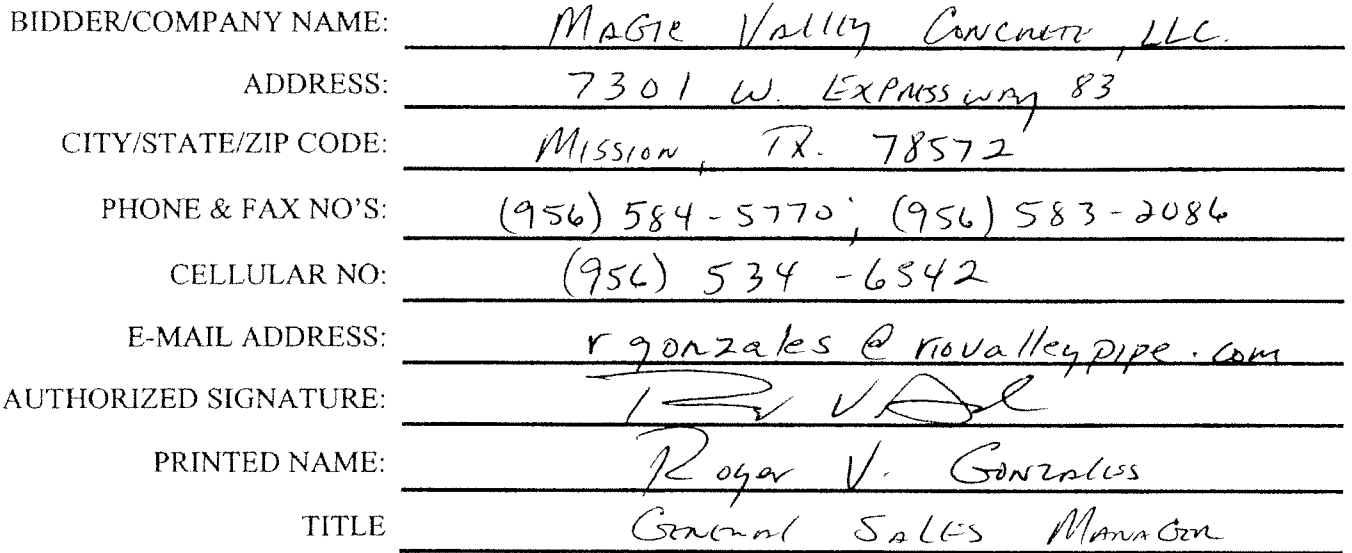 BIDDER/COMPANY NAME: Magic Valley Concrete, LLC.
ADDRESS: 7301 W. Expressway 83
CITY/STATE/ZIP CODE: Mission, TX. 78572
PHONE & FAX NO'S: (956) 584-5770; (956) 583-2086
CELLULAR NO: (956) 534-6542
E-MAIL ADDRESS: rgonzales@riovalleypipe.com
AUTHORIZED SIGNATURE:
PRINTED NAME: Roger V. Gonzales
TITLE General Sales Manager